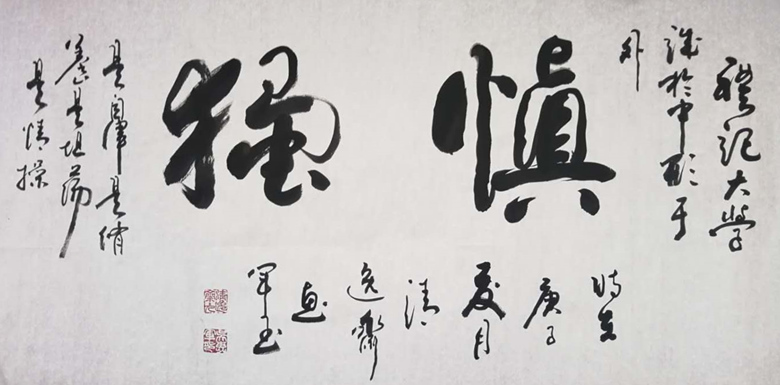 禮記大學
誠於中形于
外
慎獨
是自律是修
養是坦蕩
是情操
時在
庚子
夏月
清
逸齋
軍玉